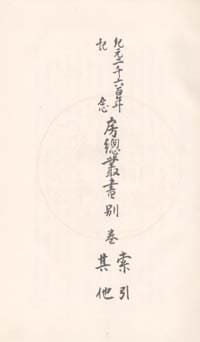 紀元二千六百年
記念
房總叢書別卷
索引
其他